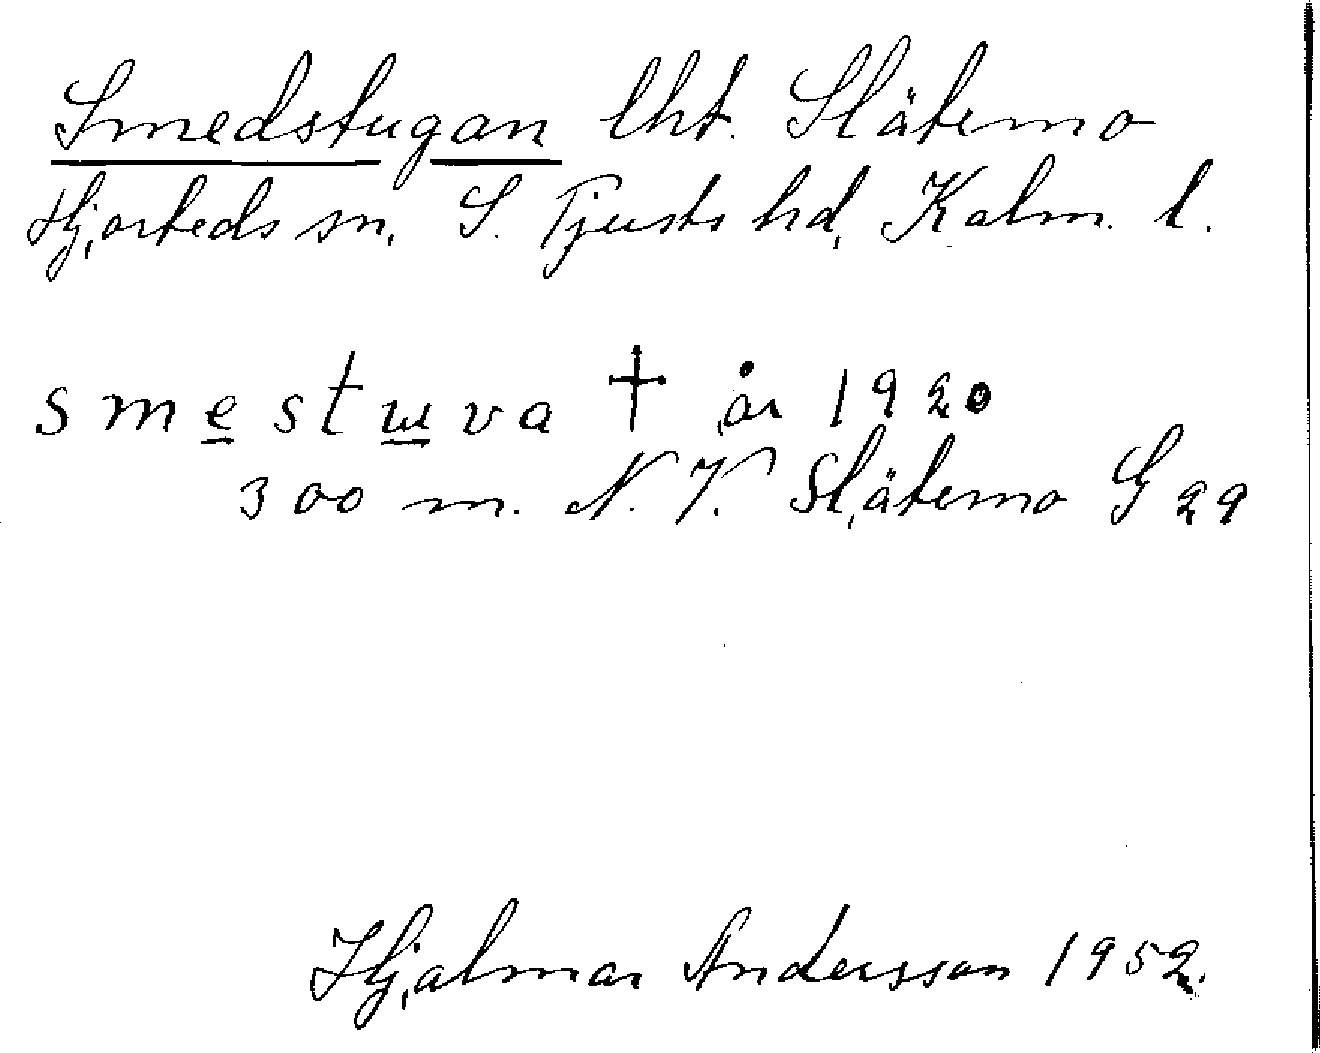 Smedstugan lht. Slätemo
Hjorteds sn. S. Tjusts hd, Kalm. l.
smestuva † år 1920
300 m. N. V. Slätemo G 29
Hjalmar Andersson 1952.